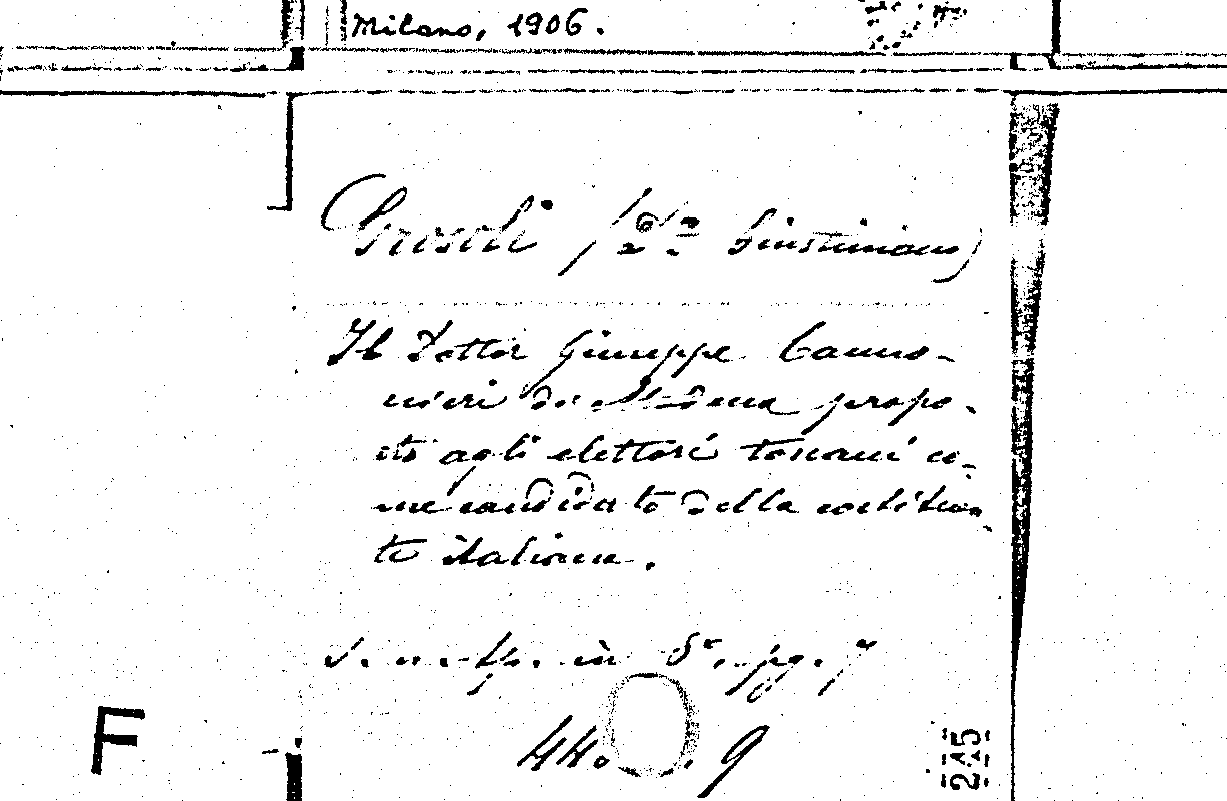 Milano, 1906.
Grosoli (Dr Giustiniano)
Il Dottor Giuseppe Canno-
nieri di Modena propo-
sto agli elettori toscani co-
me candidato della costituen-
te italiana.
s. n. tip. in 8º, pg. 7
44. . 9
F
245